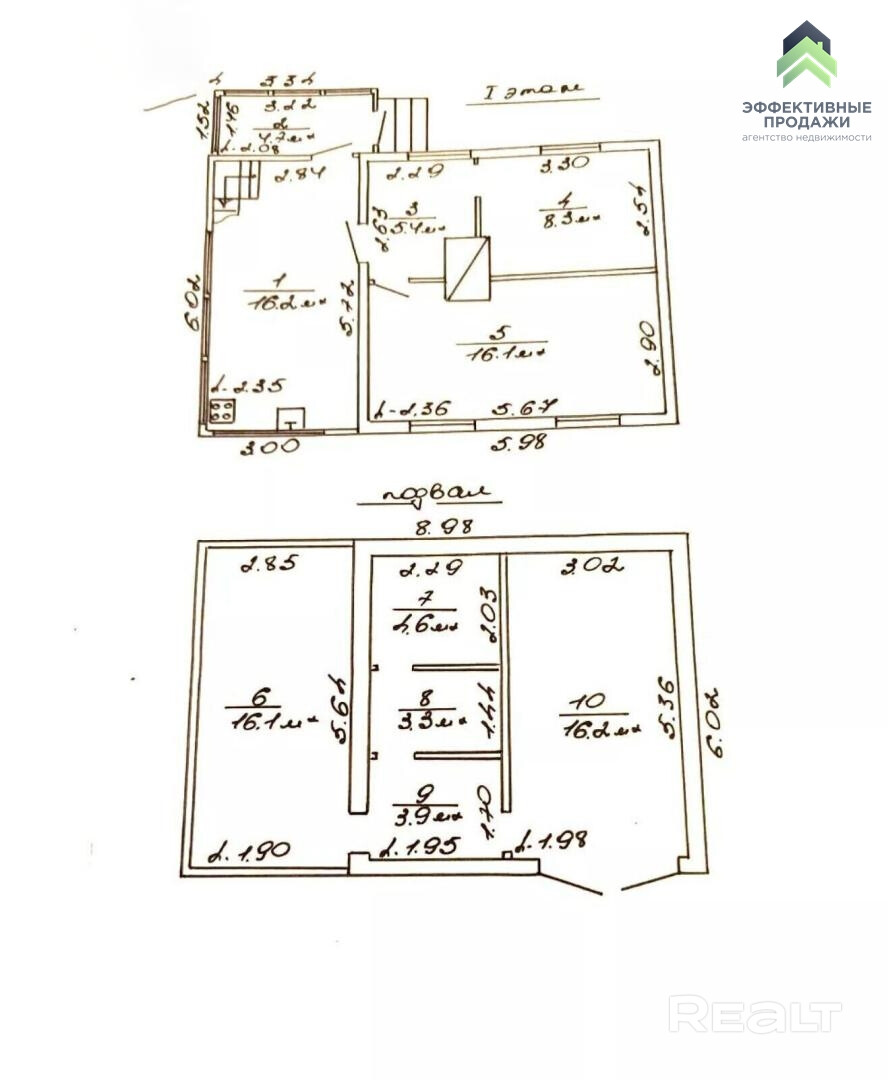 ЭФФЕКТИВНЫЕ
ПРОДАЖИ
агентство недвижимости
I этаж
3.34
3.22
1.52
1.46
2
4.7 м²
h-2.08
2.84
2.29
3.30
3
5.4 м²
2.63
4
8.3 м²
2.54
1
16.2 м²
6.02
5.72
5
16.1 м²
2.90
h-2.35
h-2.36
5.67
3.00
5.98
подвал
8.98
2.85
2.29
3.02
7
4.6 м²
2.03
6
16.1 м²
5.64
8
3.3 м²
1.44
10
16.2 м²
5.36
6.02
9
3.9 м²
1.70
h.1.90
h.1.95
h.1.98
Realt